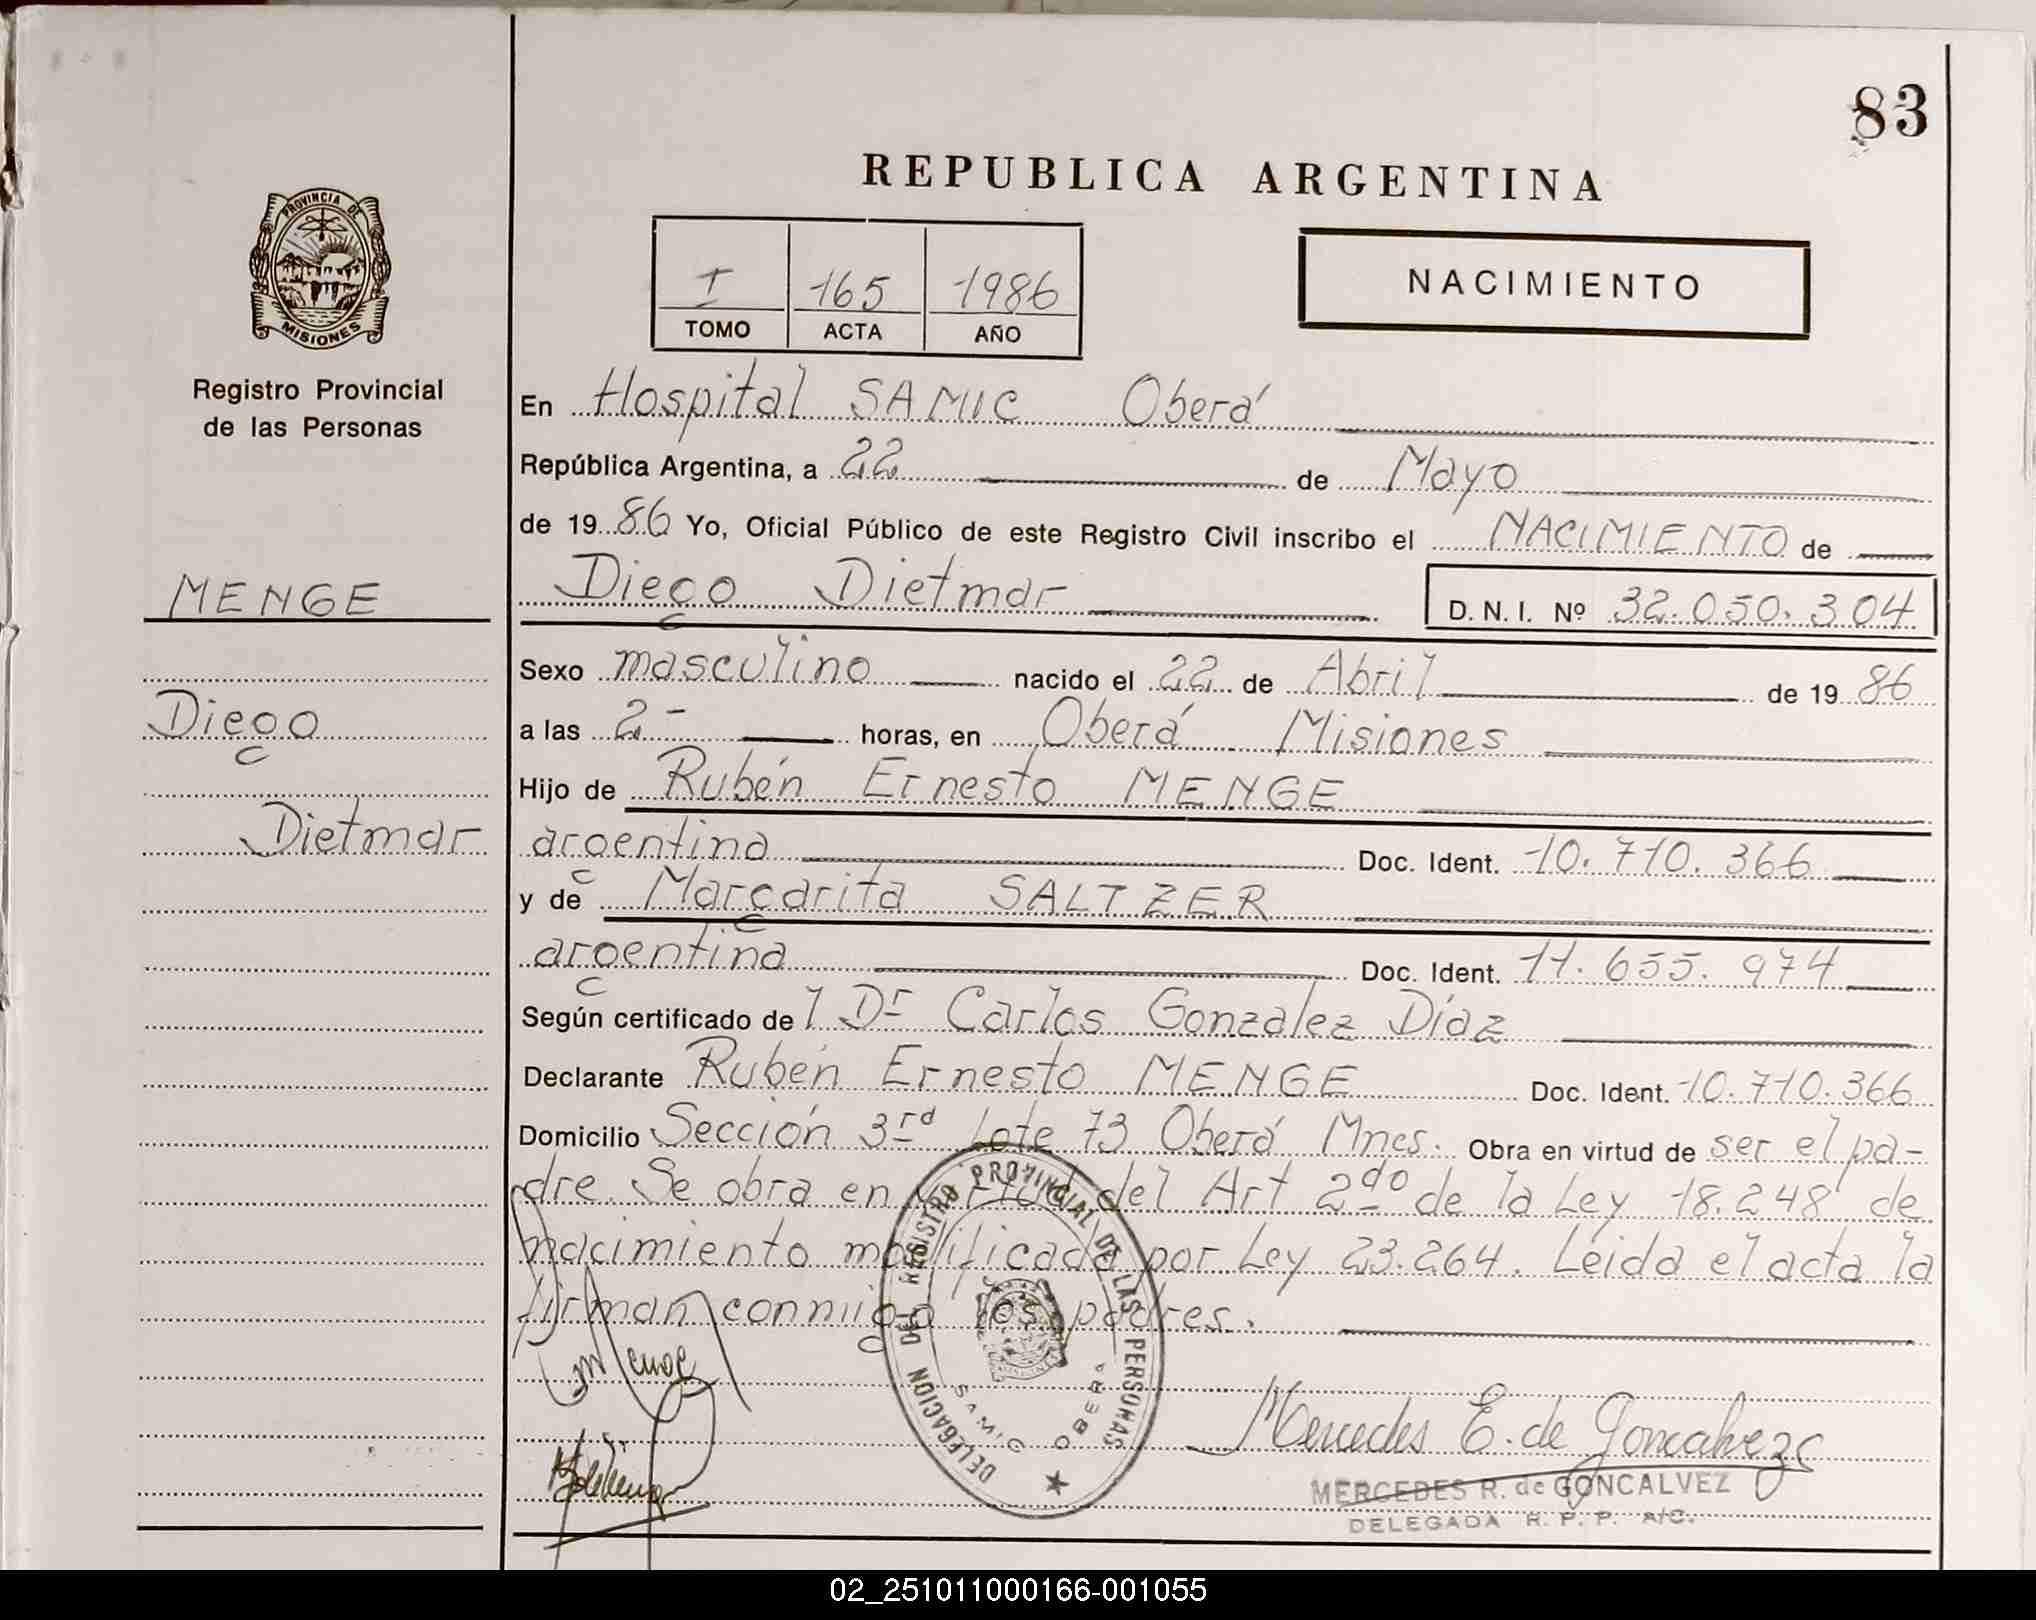 83
REPUBLICA ARGENTINA
PROVINCIA DE
MISIONES
Registro Provincial
de las Personas
I 165 1986
TOMO ACTA AÑO
NACIMIENTO
En Hospital SAMIC Oberá
República Argentina, a 22 de Mayo
de 1986 Yo, Oficial Público de este Registro Civil inscribo el NACIMIENTO de
MENGE
Diego Dietmar D. N. I. Nº 32.050.304
Sexo masculino nacido el 22 de Abril de 1986
Diego
a las 2- horas, en Oberá Misiones
Hijo de Rubén Ernesto MENGE
Dietmar
argentina Doc. Ident. 10.710.366
y de Margarita SALTZER
argentina Doc. Ident. 11.655.974
Según certificado del Dr Carlos Gonzalez Díaz
Declarante Rubén Ernesto MENGE Doc. Ident. 10.710.366
Domicilio Sección 3rd Lote 73 Oberá Mnes. Obra en virtud de ser el pa-
dre. Se obra en virtud del Art 2do de la Ley 18.248 de
nacimiento modificada por Ley 23.264. Leida el acta la
firman conmigo los padres.
DELEGACION DEL REGISTRO PROVINCIAL DE LAS PERSONAS
SAMIC OBERA
Mercedes E. de Goncalvez
MERCEDES R. de GONCALVEZ
DELEGADA R. P. P. A/C.
02_251011000166-001055